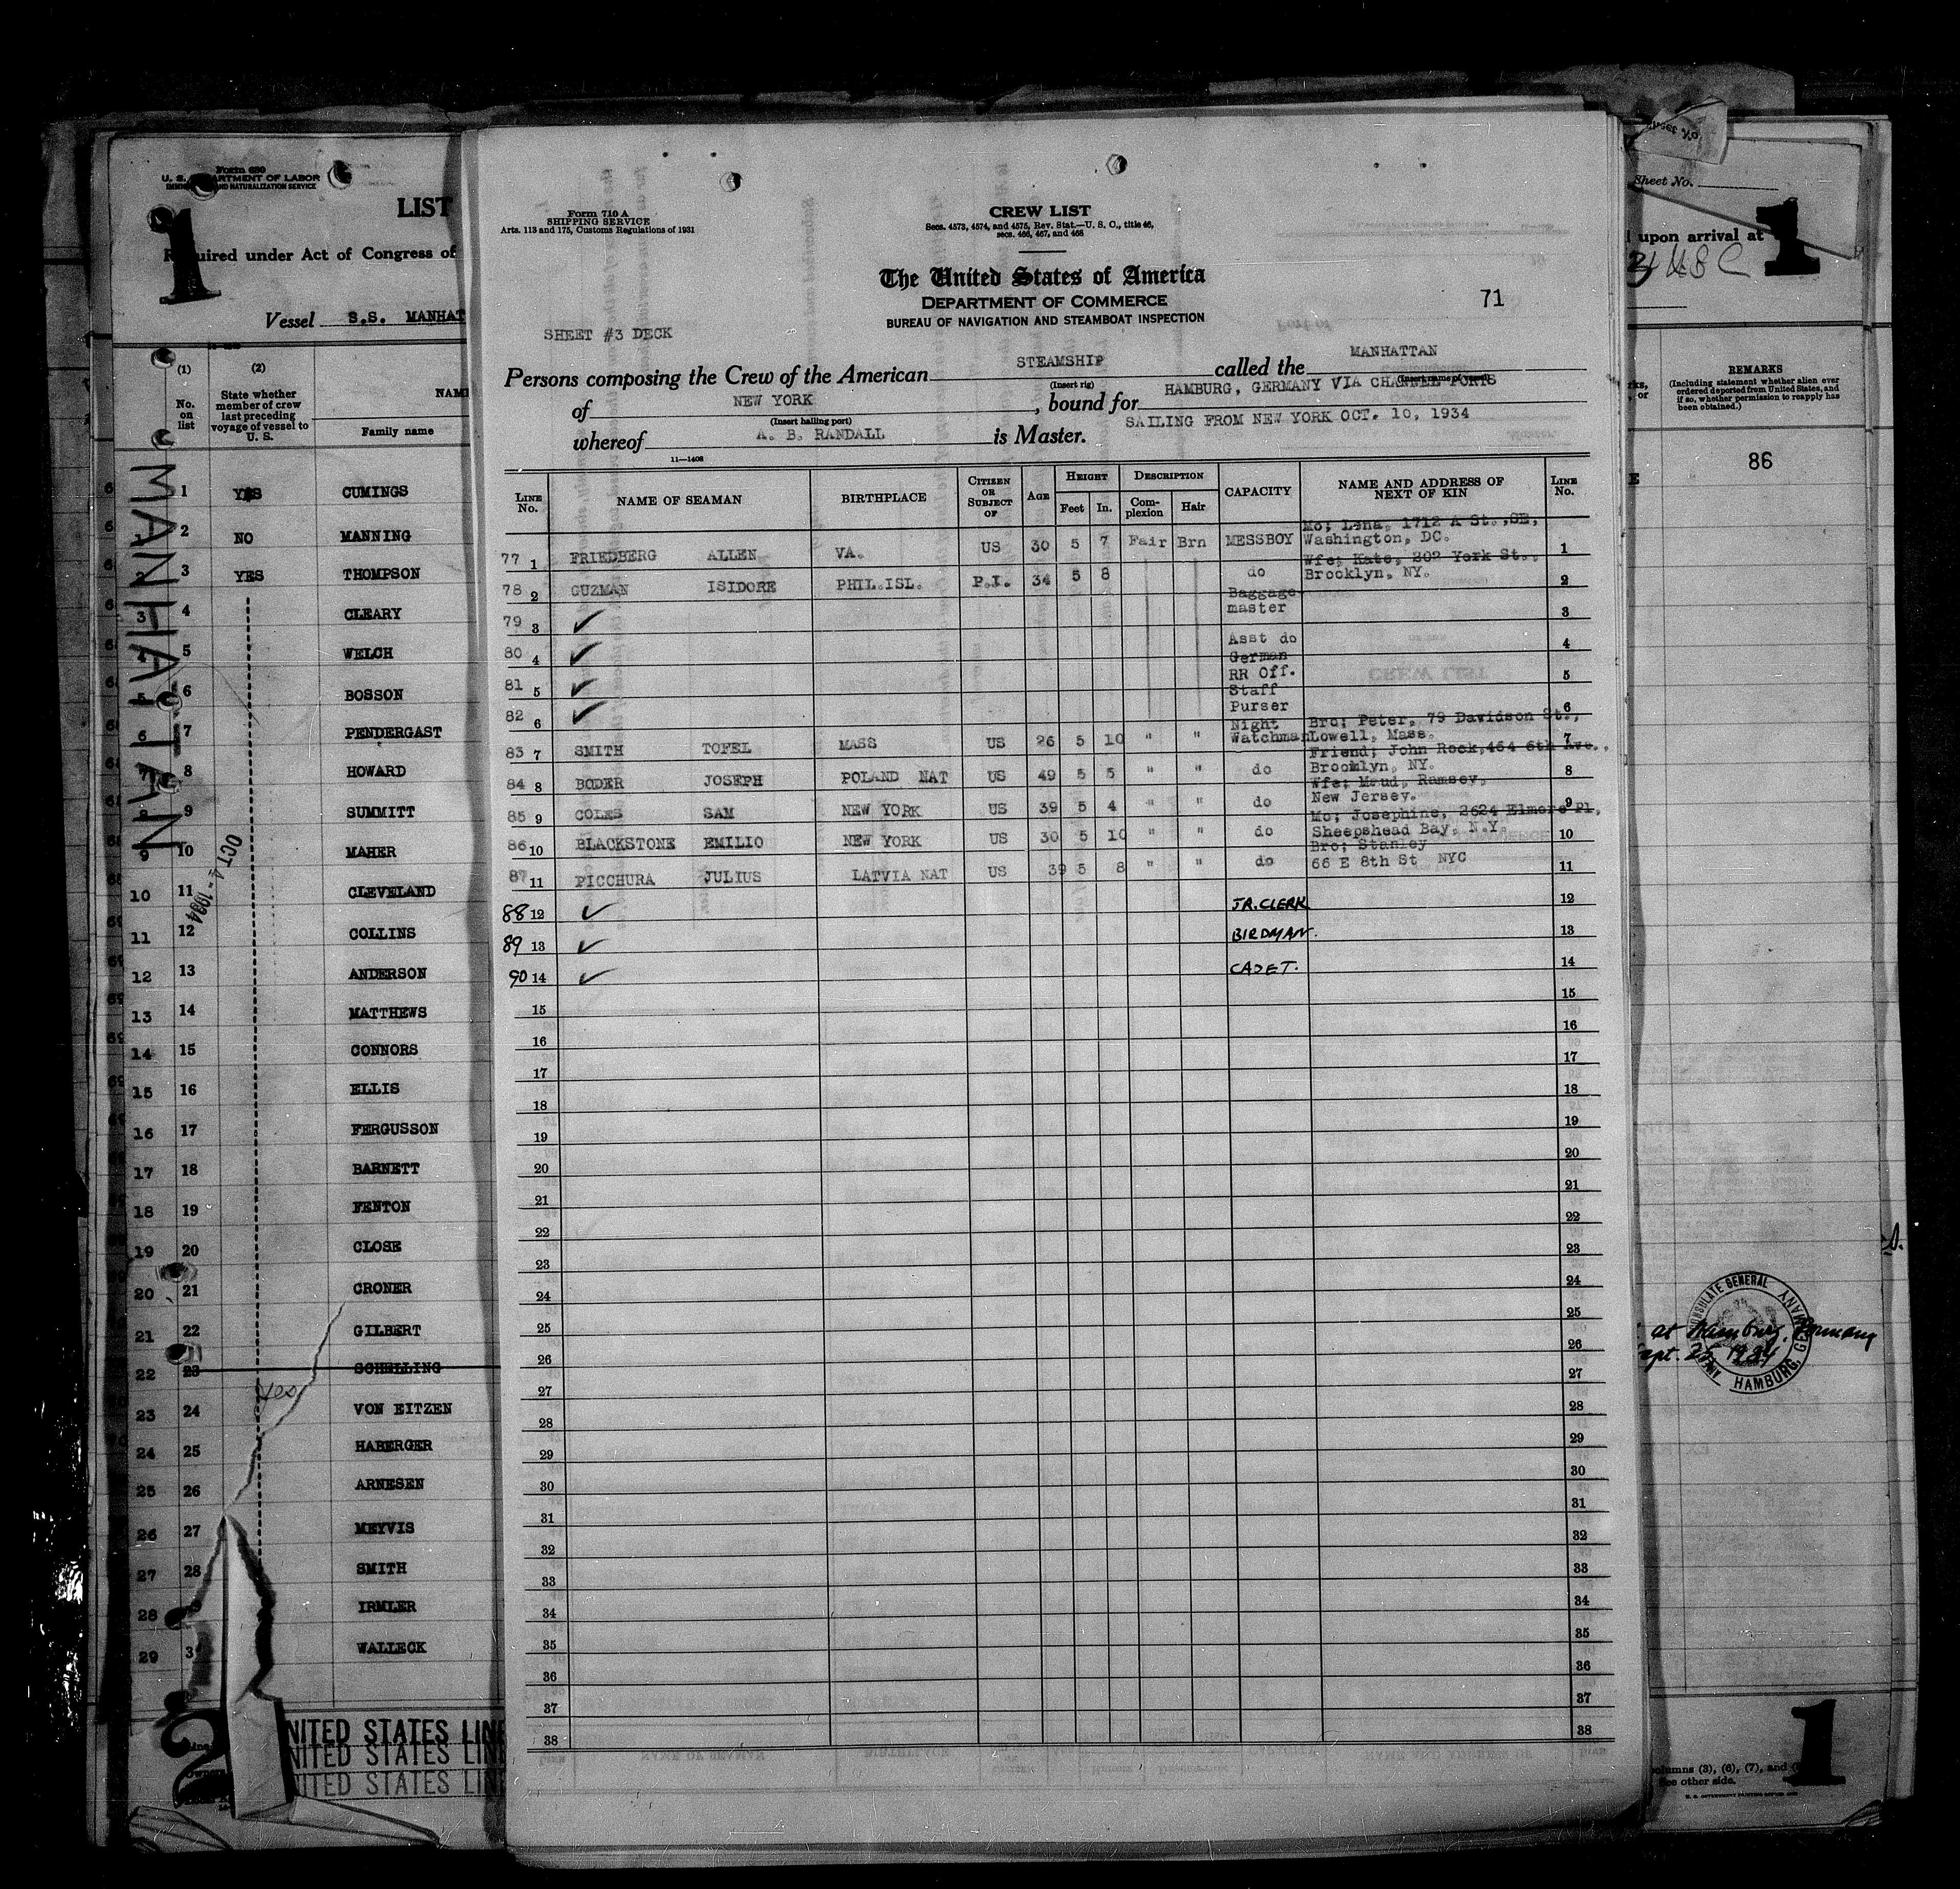 Form 680
U. S. DEPARTMENT OF LABOR
IMMIGRATION AND NATURALIZATION SERVICE
1
LIST
Required under Act of Congress of
Vessel S.S. MANHAT
(1) (2)
No. on list State whether member of crew last preceding voyage of vessel to U. S. NAME
Family name
MANHATTAN
OCT 4-1934
1 YES CUMINGS
2 NO MANNING
3 YES THOMPSON
3 4 CLEARY
5 WELCH
5 6 BOSSON
6 7 PENDERGAST
7 8 HOWARD
8 9 SUMMITT
9 10 MAHER
10 11 CLEVELAND
11 12 COLLINS
12 13 ANDERSON
13 14 MATTHEWS
14 15 CONNORS
15 16 ELLIS
16 17 FERGUSSON
17 18 BARNETT
18 19 FENTON
19 20 CLOSE
20 21 CRONER
21 22 GILBERT
22 23 SCHELLING
yes
23 24 VON EITZEN
24 25 HABERGER
25 26 ARNESEN
26 27 MEYVIS
27 28 SMITH
28 IRMLER
29 3 WALLECK
2
NITED STATES LINE
NITED STATES LINE
NITED STATES LINE
Form 710 A
SHIPPING SERVICE
Arts. 113 and 175, Customs Regulations of 1931
CREW LIST
Secs. 4573, 4574, and 4575, Rev. Stat.—U. S. C., title 46,
secs. 466, 467, and 468
The United States of America
DEPARTMENT OF COMMERCE
BUREAU OF NAVIGATION AND STEAMBOAT INSPECTION
71
SHEET #3 DECK
Persons composing the Crew of the American STEAMSHIP called the MANHATTAN
(Insert rig) (Insert name of vessel)
of NEW YORK, bound for HAMBURG, GERMANY VIA CHANNEL PORTS
(Insert hailing port)
SAILING FROM NEW YORK OCT. 10, 1934
whereof A. B. RANDALL is Master.
11—1408
LINE No. NAME OF SEAMAN BIRTHPLACE CITIZEN OR SUBJECT OF AGE HEIGHT Feet In. DESCRIPTION Complexion Hair CAPACITY NAME AND ADDRESS OF NEXT OF KIN LINE No.
Mo; Lena, 1712 A St.,SE,
77 1 FRIEDBERG ALLEN VA. US 30 5 7 Fair Brn MESSBOY Washington, DC. 1
Wfe; Kate, 202 York St.,
78 2 GUZMAN ISIDORE PHIL.ISL. P.I. 34 5 8 do Brooklyn, NY. 2
79 3 ✓ Baggage master 3
80 4 ✓ Asst do 4
81 5 ✓ German RR Off. 5
82 6 ✓ Staff Purser 6
Bro; Peter, 79 Davidson St.,
83 7 SMITH TOFEL MASS US 26 5 10 " " Night Watchman Lowell, Mass. 7
Friend; John Rock,464 6th Ave.,
84 8 BODER JOSEPH POLAND NAT US 49 5 5 " " do Brooklyn, NY. 8
Wfe; Maud, Ramsey,
85 9 COLES SAM NEW YORK US 39 5 4 " " do New Jersey. 9
Mo; Josephine, 2624 Elmore Pl,
86 10 BLACKSTONE EMILIO NEW YORK US 30 5 10 " " do Sheepshead Bay, N.Y. 10
Bro; Stanley
87 11 PICCHURA JULIUS LATVIA NAT US 39 5 8 " " do 66 E 8th St NYC 11
88 12 ✓ JR. CLERK 12
89 13 ✓ BIRDMAN. 13
90 14 ✓ CADET. 14
15 15
16 16
17 17
18 18
19 19
20 20
21 21
22 22
23 23
24 24
25 25
26 26
27 27
28 28
29 29
30 30
31 31
32 32
33 33
34 34
35 35
36 36
37 37
38 38
Sheet No.
1
upon arrival at
REMARKS
(Including statement whether alien ever
ordered deported from United States, and
if so, whether permission to reapply has
been obtained.)
86
CONSULATE GENERAL
HAMBURG, GERMANY
at Hamburg, Germany
Sept. 26 1934
columns (3), (6), (7), and
See other side.
1
U. S. GOVERNMENT PRINTING OFFICE